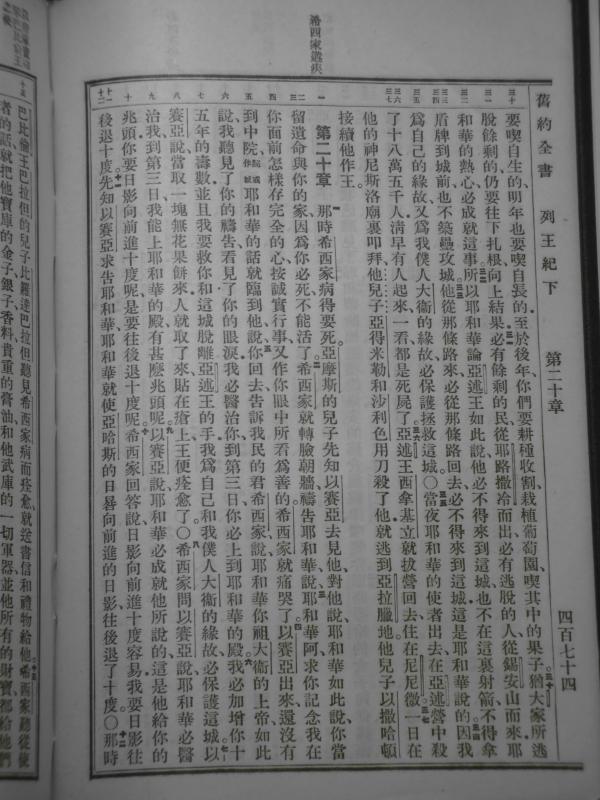 舊約全書 列王紀下 第二十章 四百七十四
希西家遘疾
要喫自生的明年也要喫自長的至於後年你們要耕種收割栽植葡萄園喫其中的果子猶大家所逃
脫餘剩的仍要往下扎根向上結果必有餘剩的民從耶路撒冷而出必有逃脫的人從錫安山而來耶
和華的熱心必成就這事所以耶和華論亞述王如此說他必不得來到這城也不在這裏射箭不得拿
盾牌到城前也不築壘攻城他從那條路來必從那條路回去必不得來到這城這是耶和華說的因我
爲自己的緣故又爲我僕人大衞的緣故必保護拯救這城〇當夜耶和華的使者出去在亞述營中殺
了十八萬五千人淸早有人起來一看都是死屍了亞述王西拿基立就拔營回去住在尼尼微一日在
他的神尼斯洛廟裏叩拜他兒子亞得米勒和沙利色用刀殺了他就逃到亞拉臘地他兒子以撒哈頓
接續他作王
第二十章 那時希西家病得要死亞摩斯的兒子先知以賽亞去見他對他說耶和華如此說你當
留遺命與你的家因爲你必死不能活了希西家就轉臉朝牆禱告耶和華說耶和華阿求你記念我在
你面前怎樣存完全的心按誠實行事又作你眼中所看爲善的希西家就痛哭了以賽亞出來還沒有
到中院院或作城耶和華的話就臨到他說你回去告訴我民的君希西家說耶和華你祖大衞的上帝如此
說我聽見了你的禱告看見了你的眼淚我必醫治你到第三日你必上到耶和華的殿我必加增你十
五年的壽數並且我要救你和這城脫離亞述王的手我爲自己和我僕人大衞的緣故必保護這城以
賽亞說當取一塊無花果餅來人就取了來貼在瘡上王便痊愈了〇希西家問以賽亞說耶和華必醫
治我到第三日我能上耶和華的殿有甚麼兆頭呢以賽亞說耶和華必成就他所說的這是他給你的
兆頭你要日影向前進十度呢是要往後退十度呢希西家回答說日影向前進十度容易我要日影往
後退十度先知以賽亞求告耶和華耶和華就使亞哈斯的日晷向前進的日影往後退了十度〇那時
巴比倫王巴拉但的兒子比羅達巴拉但聽見希西家病而痊愈就送書信和禮物給他希西家聽從使
者的話就把他寶庫的金子銀子香料貴重的膏油和他武庫的一切軍器並他所有的財寶都給他們